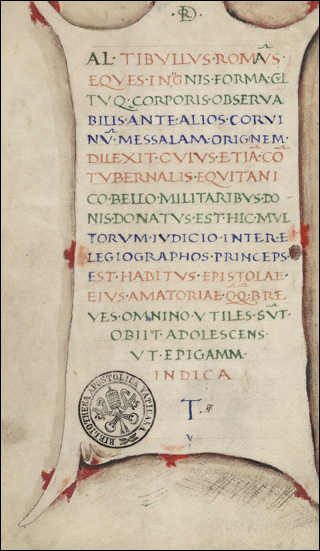 AL·TIBVLLVS·ROMAS
EQVES·INGNIS·FORMA·GL
TVQ·CORPORIS·OBSERVA
BILIS·ANTE·ALIOS·CORVI
NV·MESSALAM·ORIGNEM·
DILEXIT·CVIVS·ETIA·CO
TVBERNALIS·EQVITANI
CO·BELLO·MILITARIBVS·DO
NIS·DONATVS·EST·HIC·MVL
TORVM·IVDICIO·INTER·E
LEGIOGRAPHOS·PRINCEPS
EST·HABITVS·EPISTOLAE·
EIVS·AMATORIAE·QQ·BRE
VES·OMNINO·VTILES·SVT·
OBIIT·ADOLESCENS·
VT·EPIGAMM·
INDICA
T
BIBLIOTHECA APOSTOLICA VATICANA